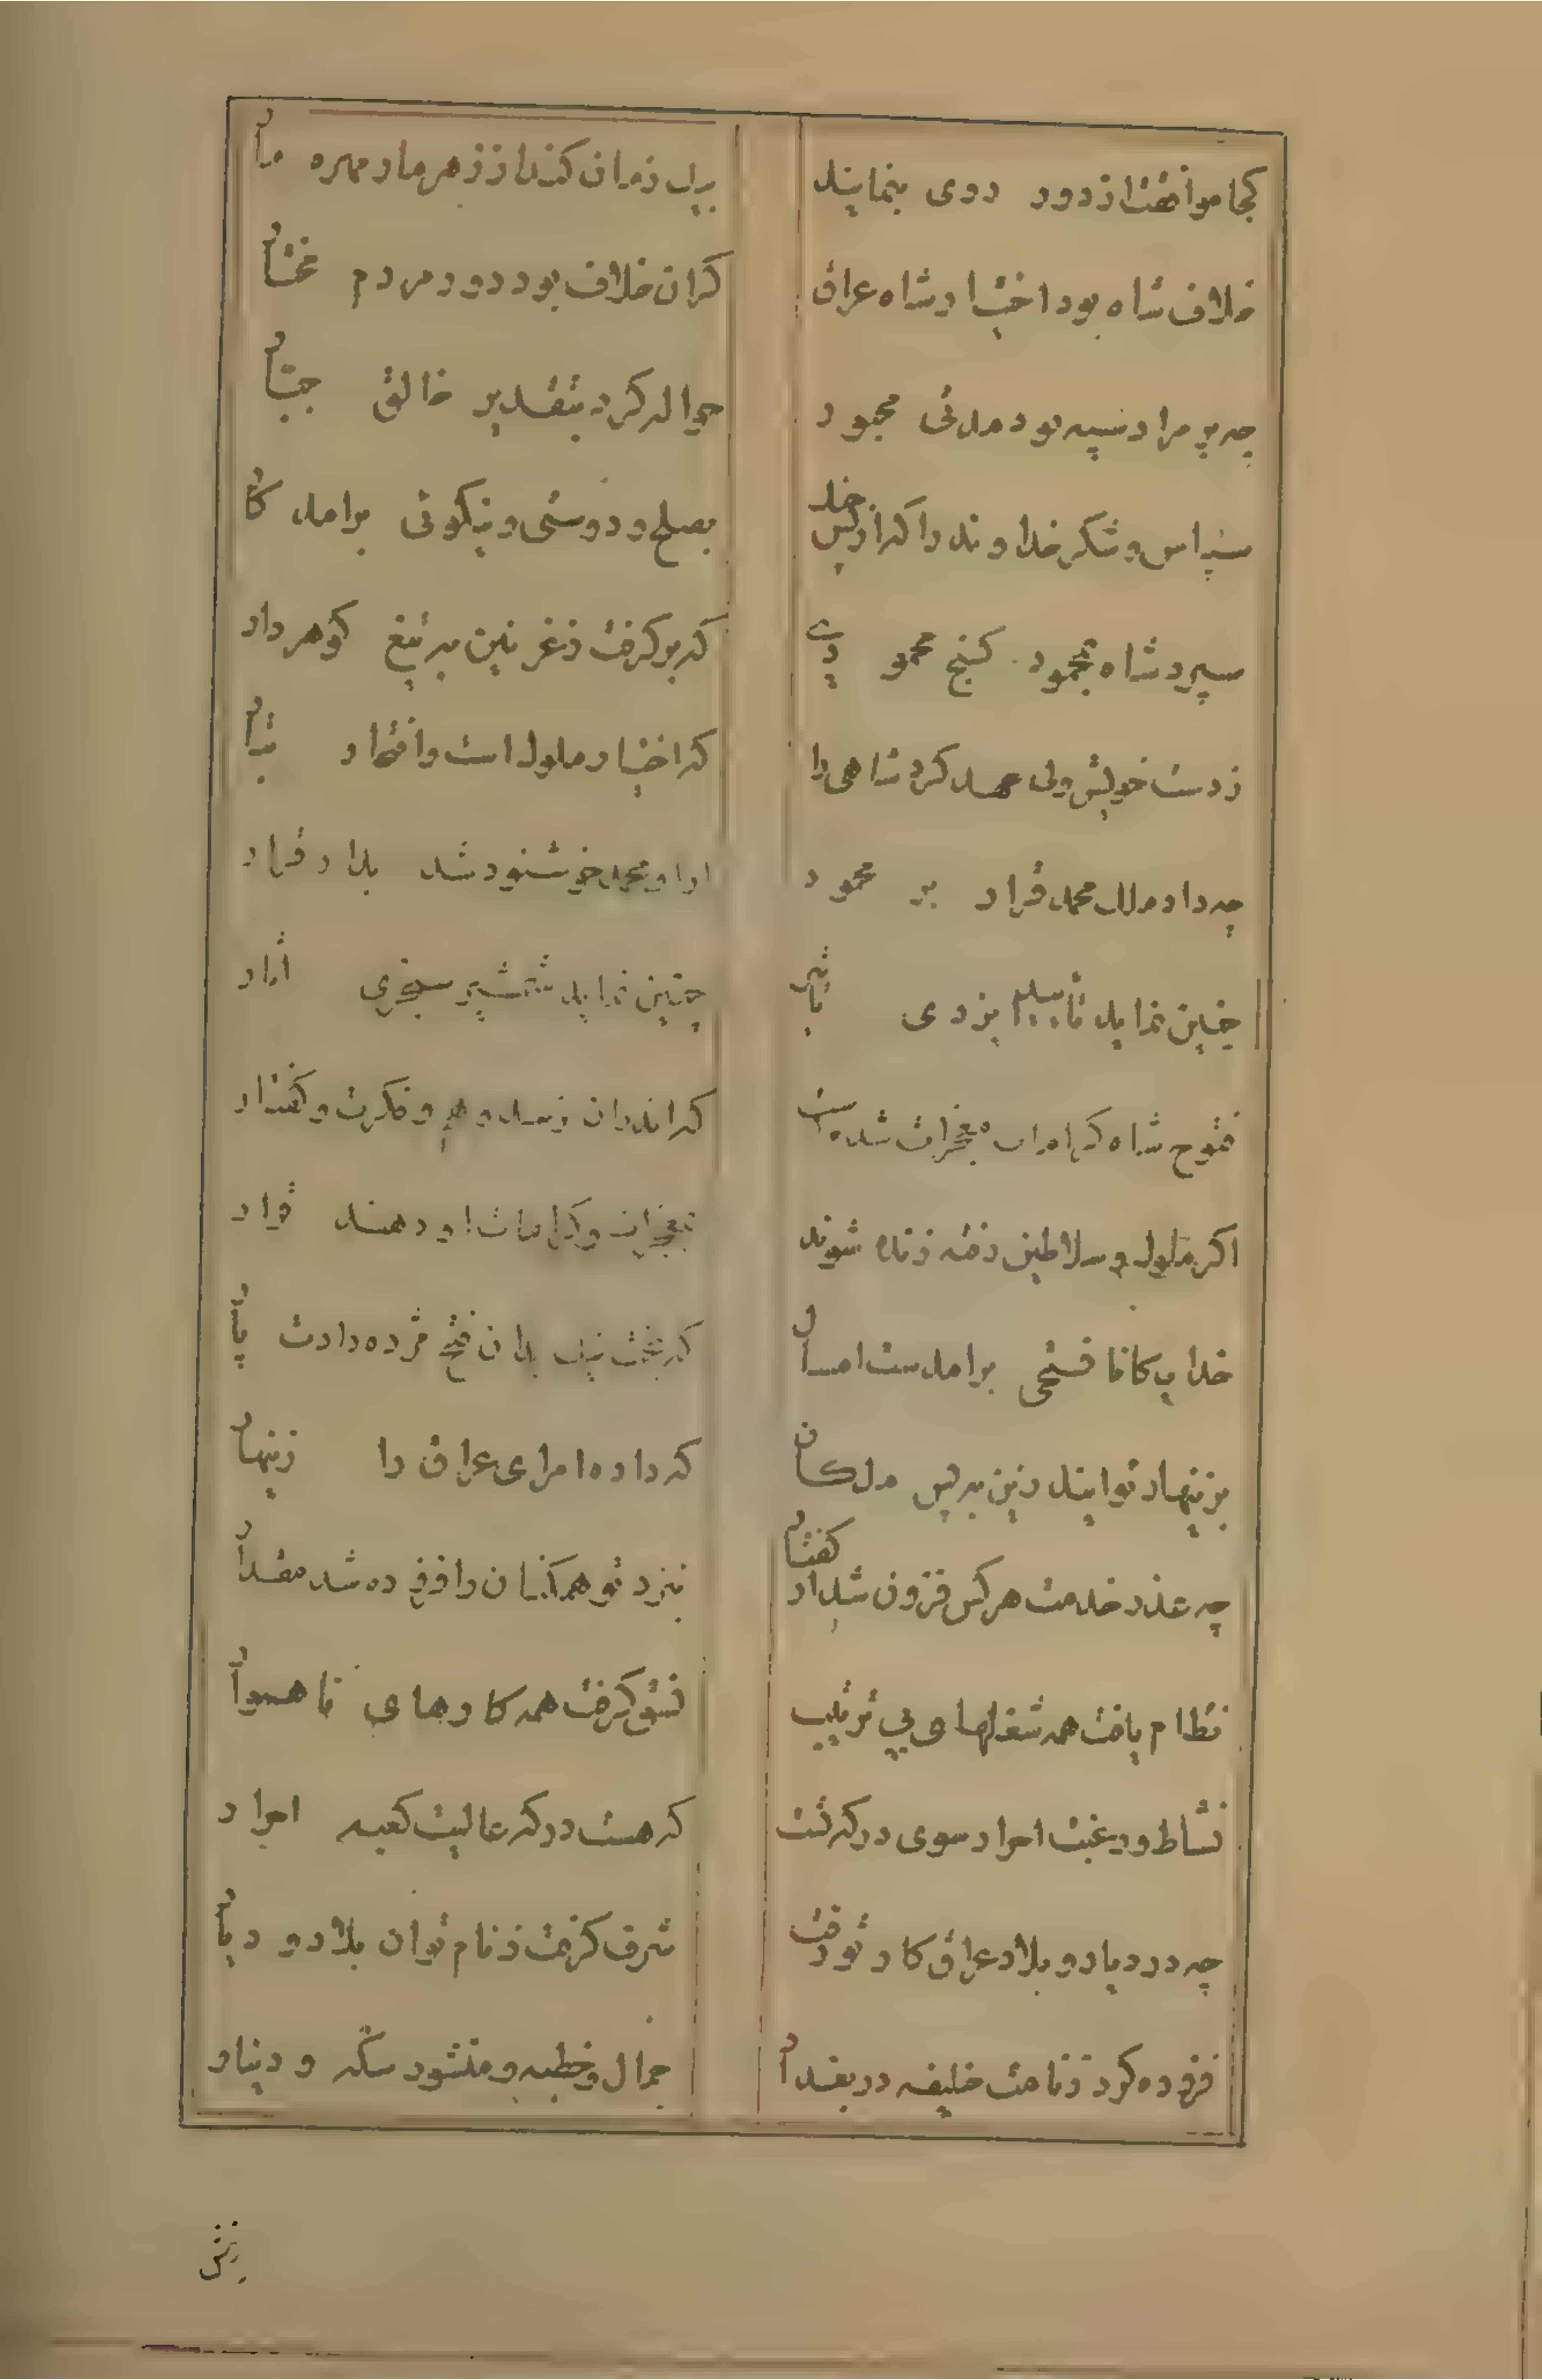 کجا موافقت از دور روی بنمایند
بیک زمان کند از زهر مار مهره مار
خلاف شاه بود اختیار شاه عراق
کران خلاف بود دور مردم مختار
چه بر مراد سپه بود مدتی محمود
حواله کرد بتقدیر خالق جبار
سپاس و شکر خداوند را که از پس جنک
بصلح و دوستی و نیکوئی برآمد کار
سپرد شاه بمحمود کنج محمودی
که بر گرفت ز غزنین به تیغ گوهردار
ز دست خویش ولی عهد کرد شاهی را
که اختیار ملوک است و افتخار تبار
چه داد ملک محمد قرار بر محمود
محمد خوشنود شد بدار قرار
چنین نماید تأیید ایزدی تاثیر
چنین نماید شمشیر سنجری آثار
فتوح شاه کرامات معجزات شده‌ست
که اندران نرسد وهم و فکرت و گفتار
اگر ملوک و سلاطین رفته زنده شوند
بمعجزات و کرامات او دهند قرار
خدایگانا فتحی برآمدست امسال
که بخت نیک بدان فتح مژده دادت پار
بزینهار تو ایند زین سپس ملکان
که داده امرای عراق را زنهار
چه عذر خدمت هر کس فزون شد از گفتار
بنزد تو همگنان را فزوده شد مقدار
نظام یافت همه شغلهای بی ترتیب
نسق گرفت همه کارهای ناهموار
نشاط و رغبت احرار سوی درگه تست
که هست درگه عالیت کعبه احرار
چه در دیار و بلاد عراق کار تو رفت
شرف گرفت ز نام تو آن بلاد و دیار
فزوده کرد ز نامت خلیفه در بغداد
جمال خطبه و منشور سکه و دینار